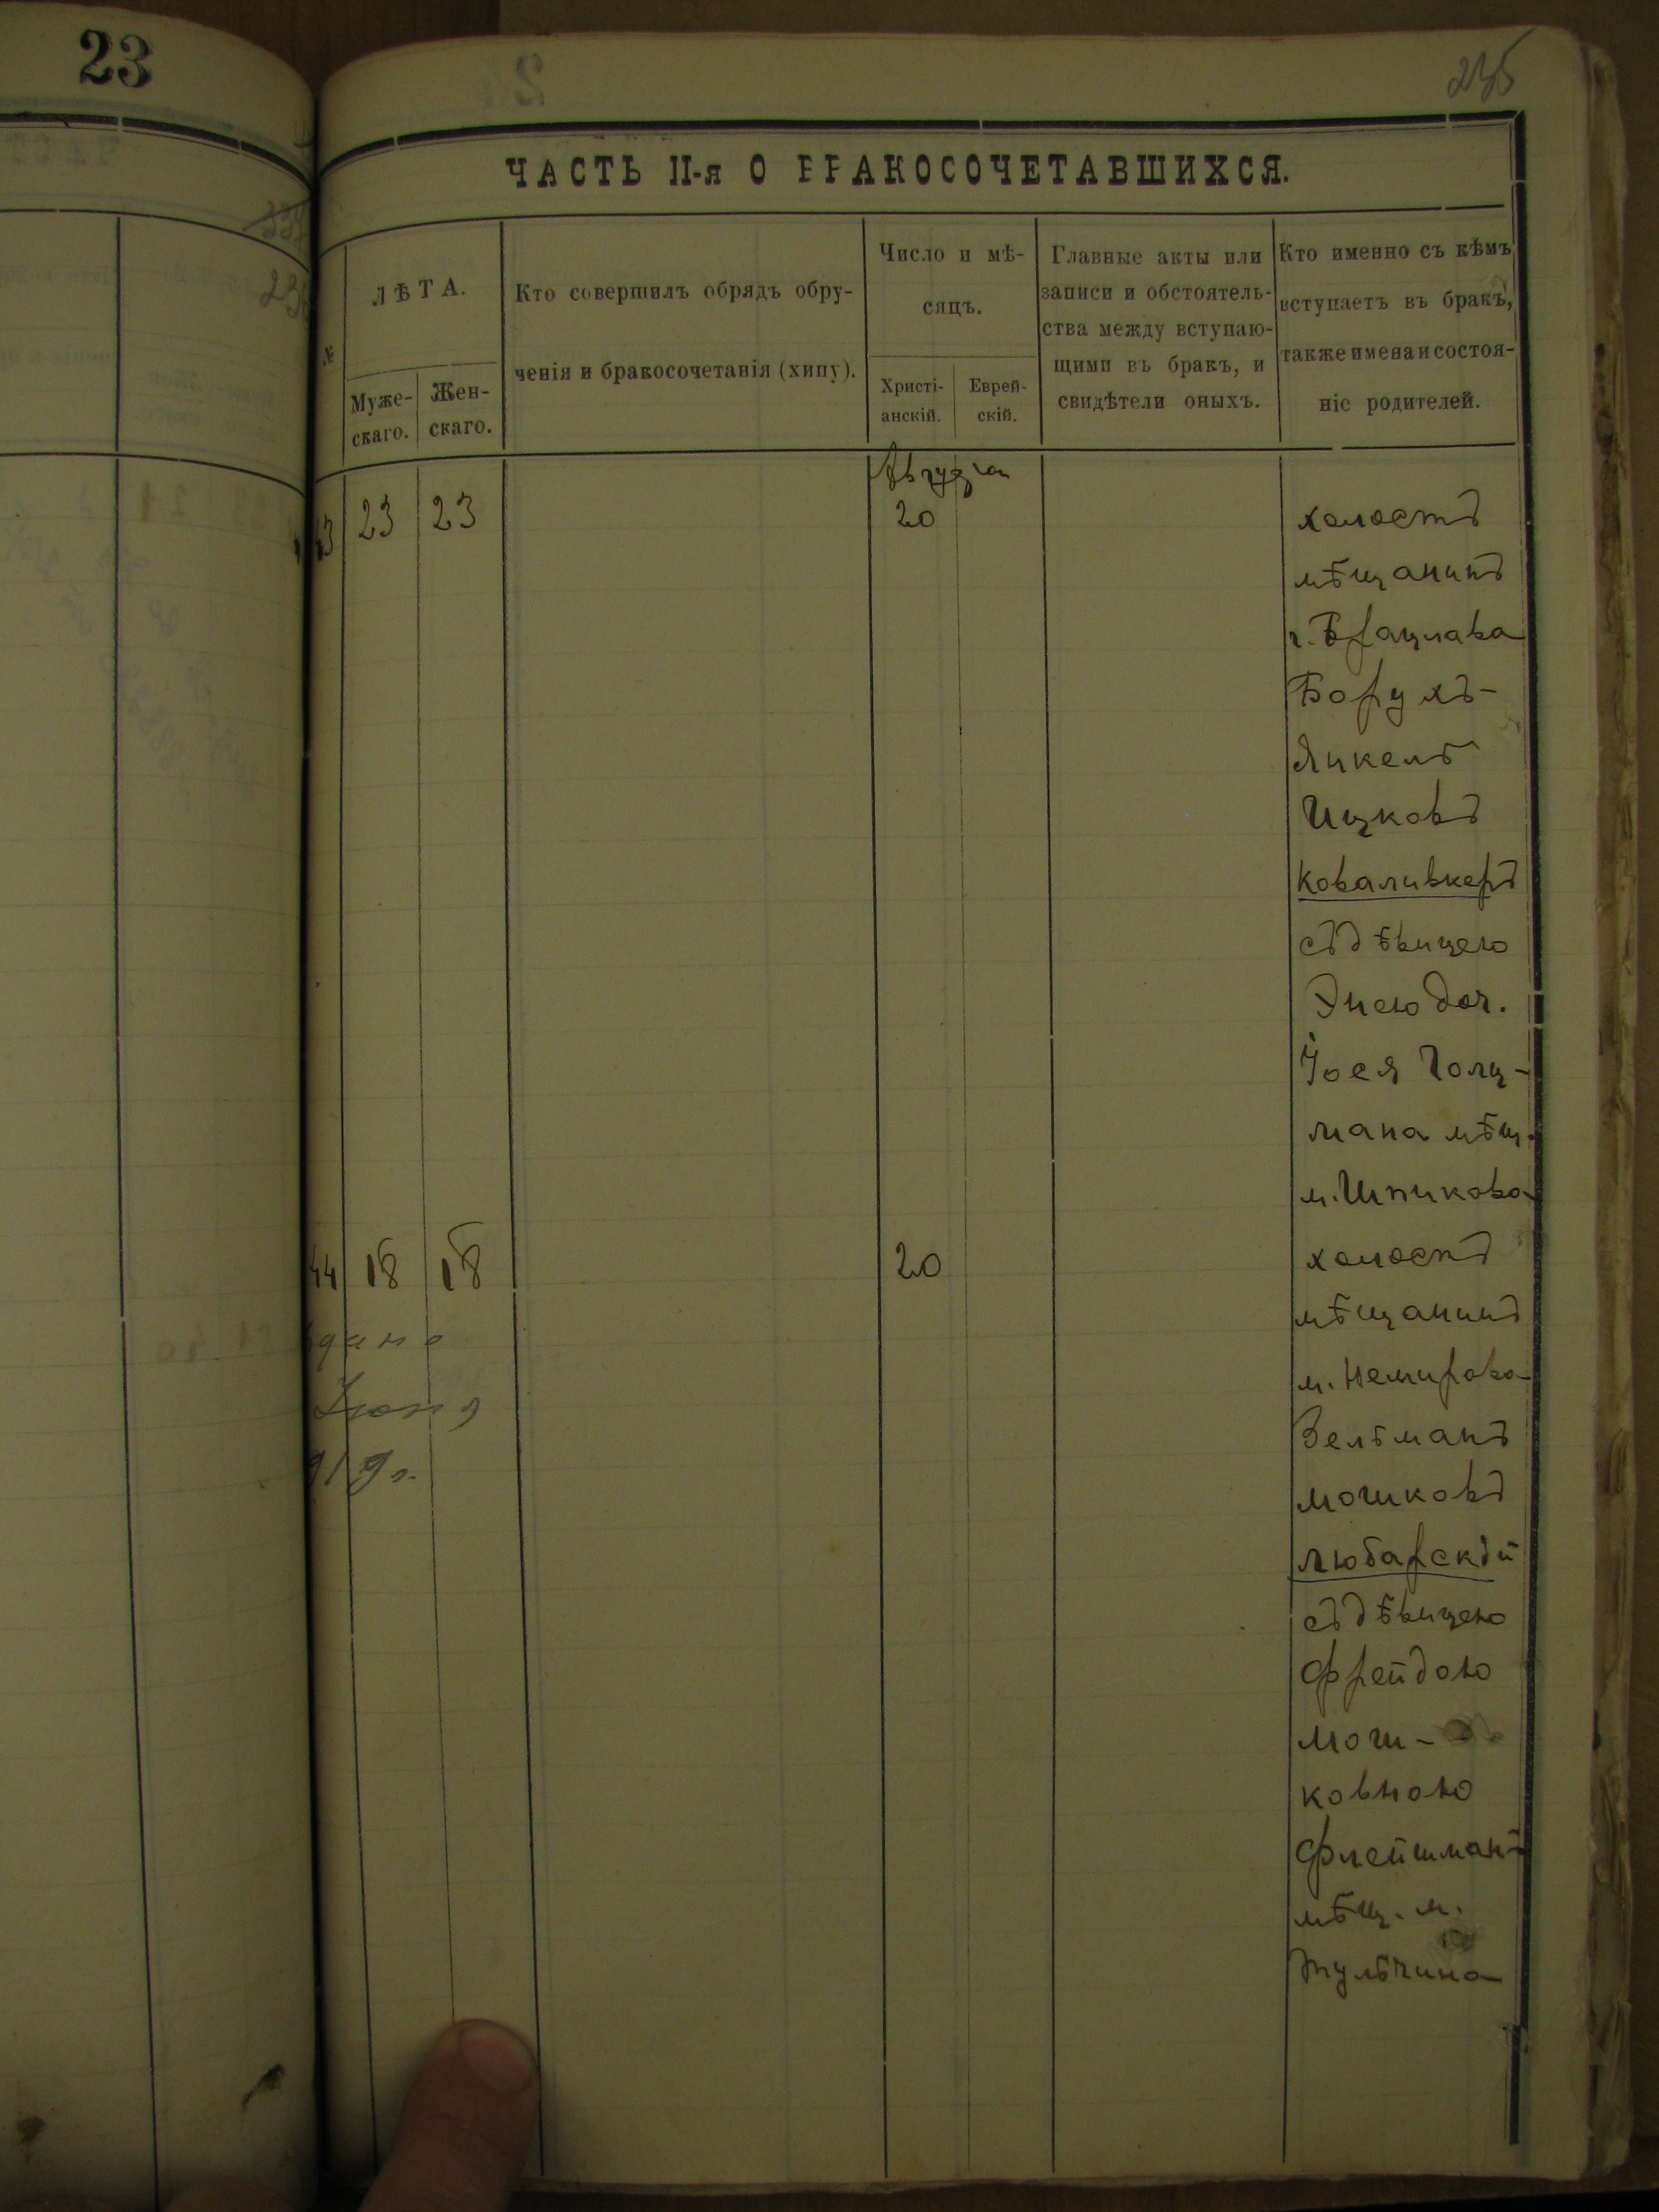 23
235
ЧАСТЬ II-я О БРАКОСОЧЕТАВШИХСЯ.
№
ЛѢТА.
Муже-
скаго.
Жен-
скаго.
Кто совершилъ обрядъ обру-
ченія и бракосочетанія (хипу).
Число и мѣ-
сяцъ.
Христі-
анскій.
Еврей-
скій.
Главные акты или
записи и обстоятель-
ства между вступаю-
щими въ бракъ, и
свидѣтели оныхъ.
Кто именно съ кѣмъ
вступаетъ въ бракъ,
также имена и состоя-
ніе родителей.
Августа
43 23 23 20
холостъ
мѣщанинъ
г. Брацлава
Борухъ-
Янкель
Ицковъ
Коваливкеръ
съ дѣвицею
Энею доч.
Іося Голц-
мана мѣщ.
м. Шпикова
44 18 18 20
холостъ
мѣщанинъ
м. Немирова
Зельманъ
Мошковъ
Любарскій
съ дѣвицею
Фрейдою
Мош-
ковною
Флейшманъ
мѣщ. м.
Тульчина